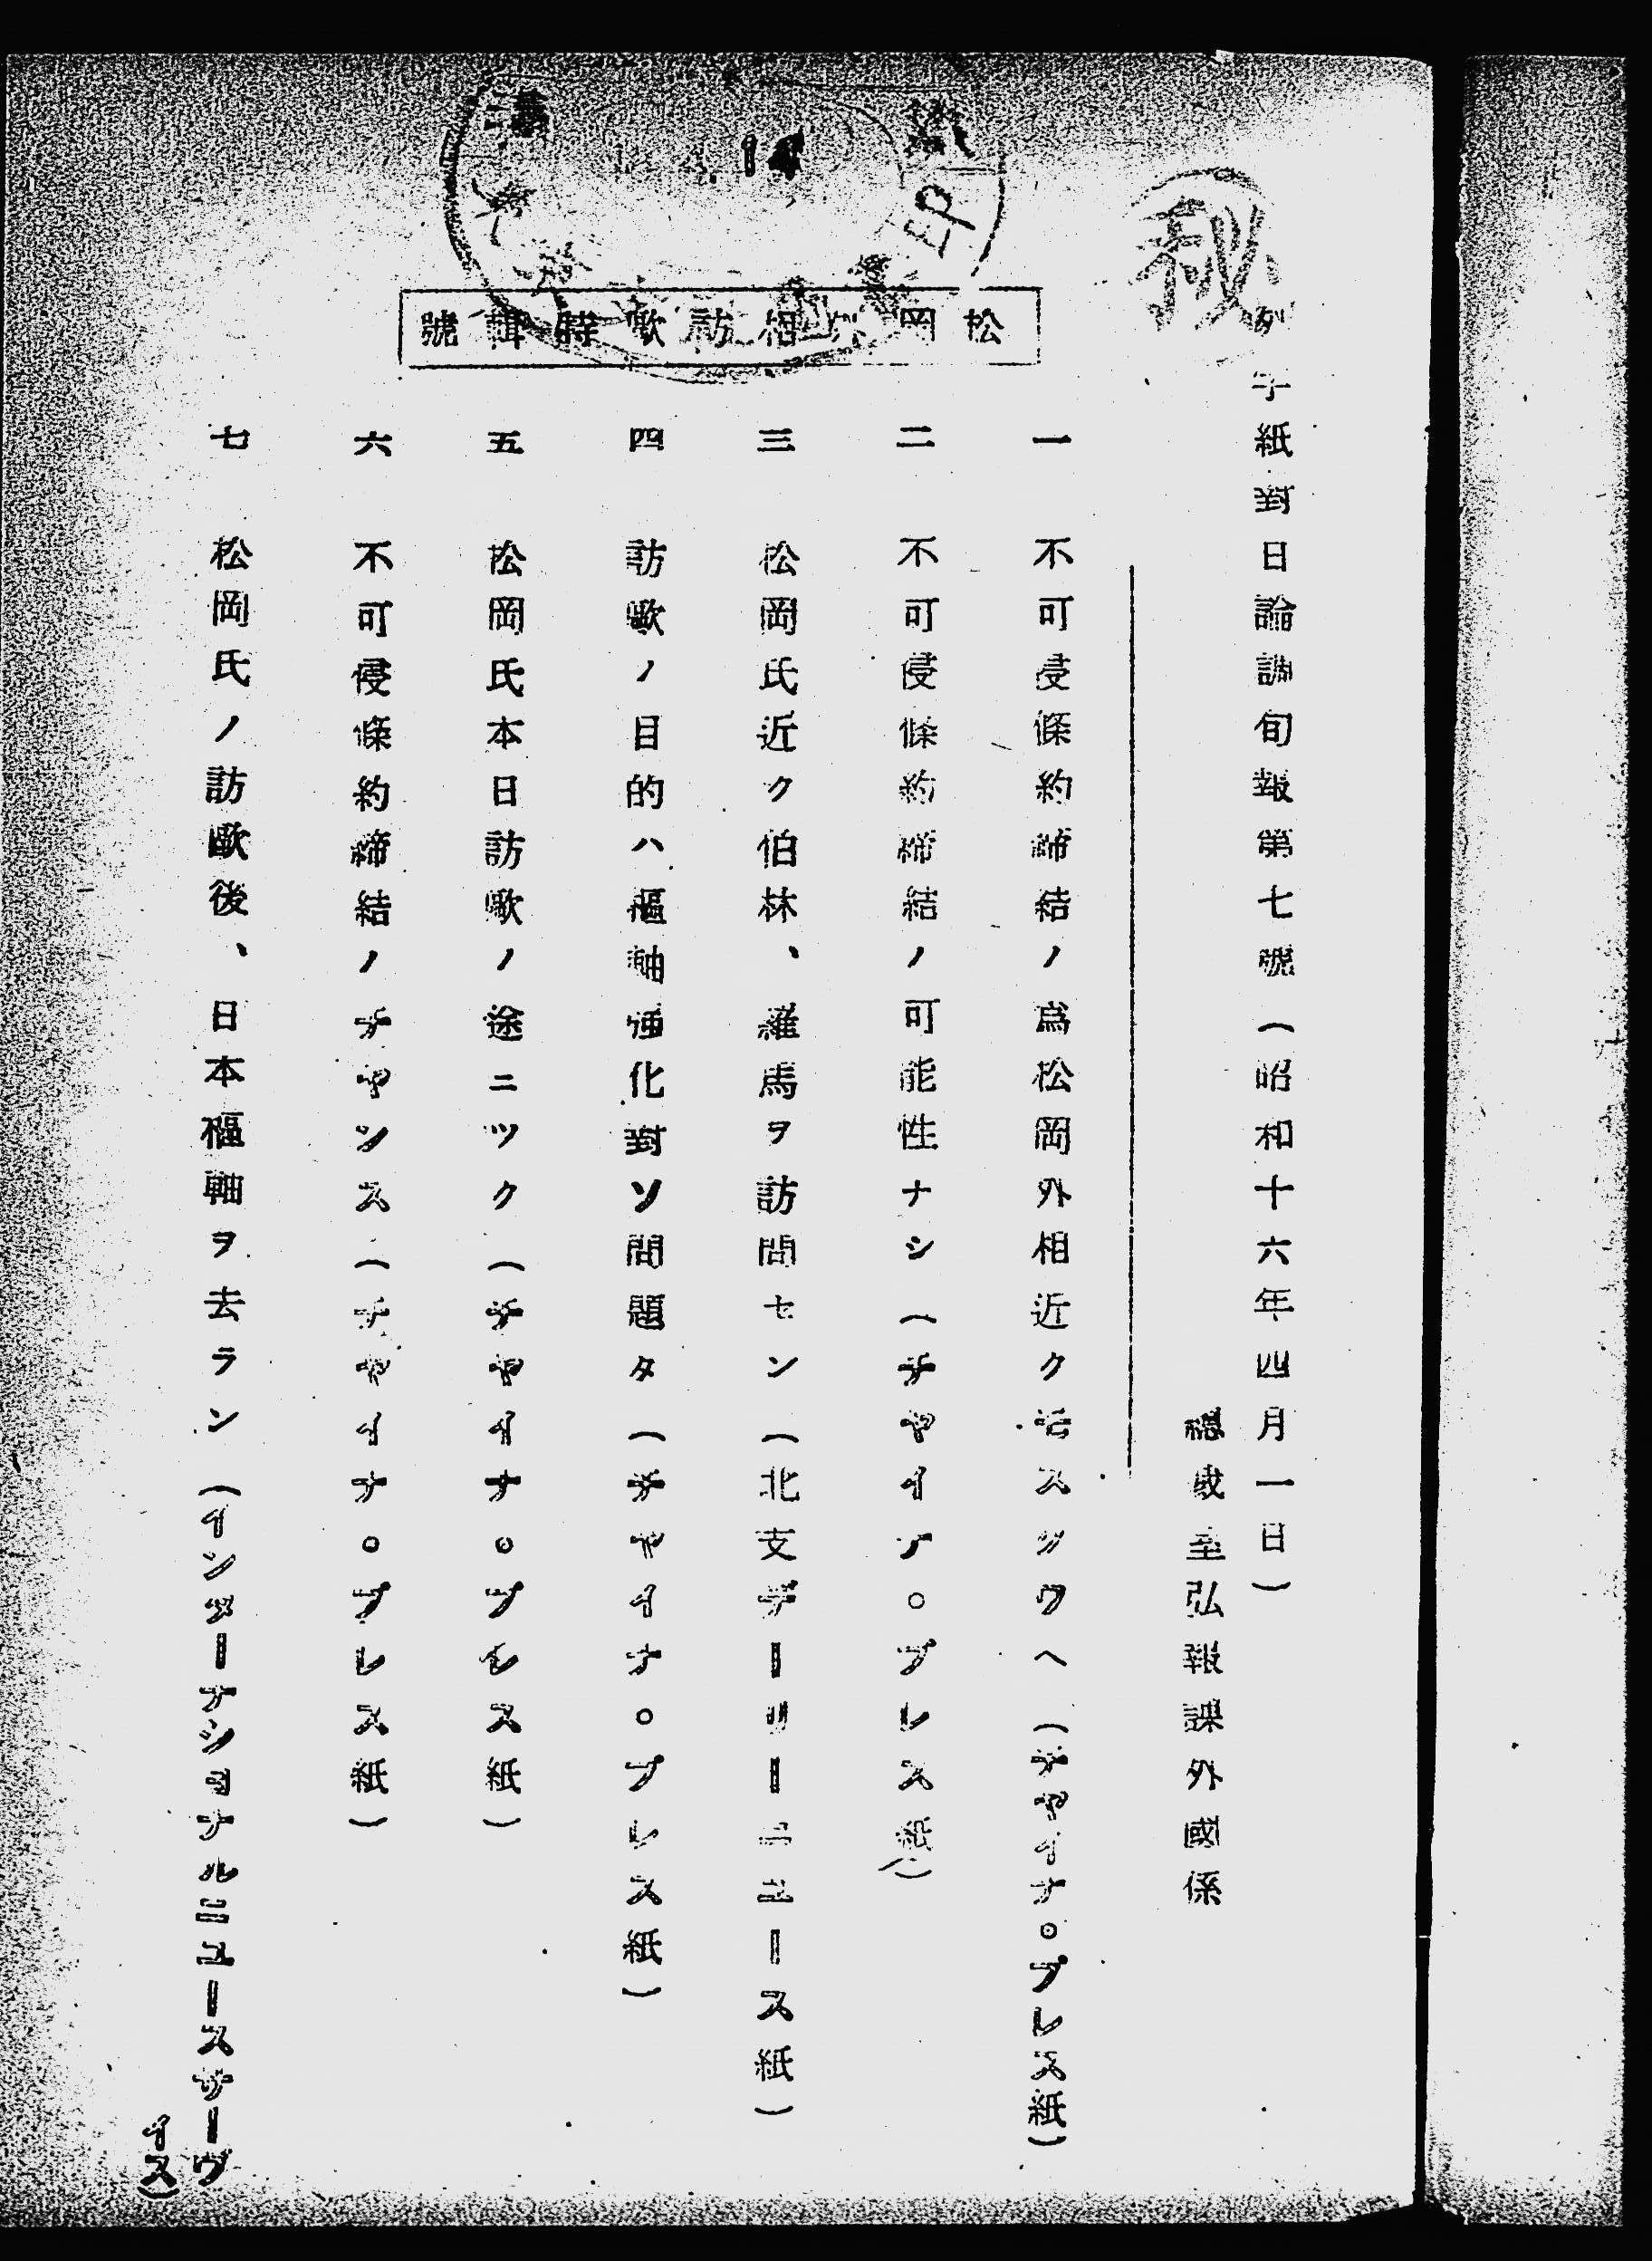 秘
列字紙對日論調旬報第七號(昭和十六年四月一日)
總裁室弘報課外國係
松岡外相訪歐特輯號
一 不可侵條約締結ノ爲松岡外相近クモスクワヘ(チヤイナ。プレス紙)
二 不可侵條約締結ノ可能性ナシ(チヤイナ。プレス紙)
三 松岡氏近ク伯林、羅馬ヲ訪問セン(北支デーリーニユース紙)
四 訪歐ノ目的ハ樞軸强化對ソ問題タ(チヤイナ。プレス紙)
五 松岡氏本日訪歐ノ途ニツク(チヤイナ。プレス紙)
六 不可侵條約締結ノチヤンス(チヤイナ。プレス紙)
七 松岡氏ノ訪歐後、日本樞軸ヲ去ラン(インターナシヨナルニユースサーヴ
イス)
14
印